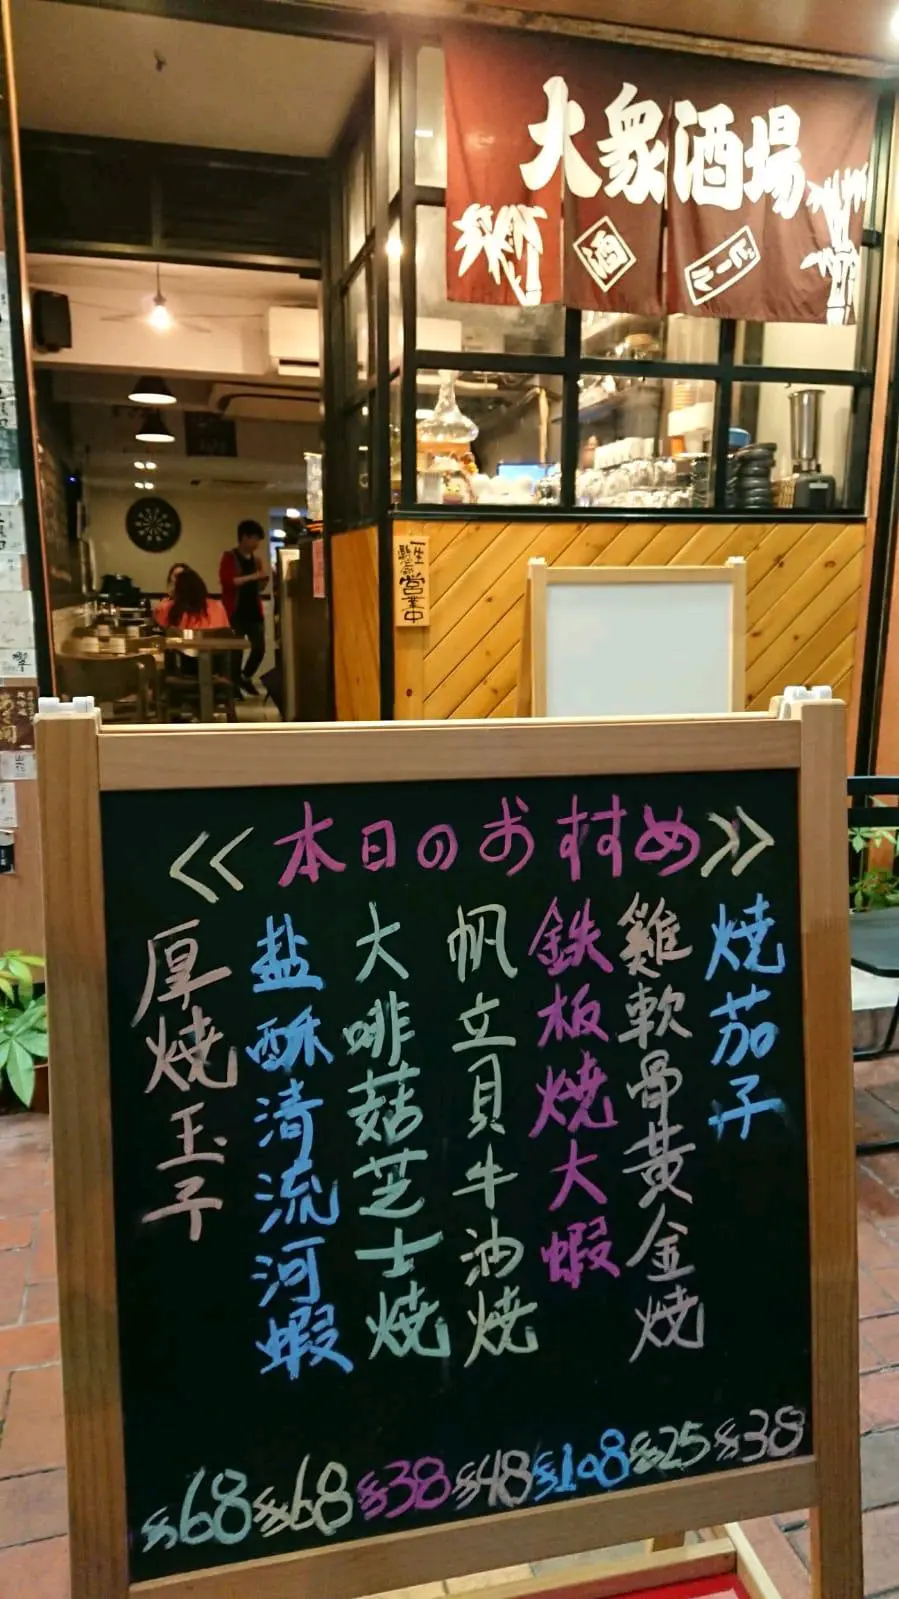 大衆酒場
酒
ビール
一生
懸命
営業中
<<本日のおすすめ>>
焼茄子
雞軟骨黄金焼
鉄板焼大蝦
帆立貝牛油焼
大啡菇芝士焼
盐酥清流河蝦
厚焼玉子
$68
$68
$38
$48
$108
$25
$38